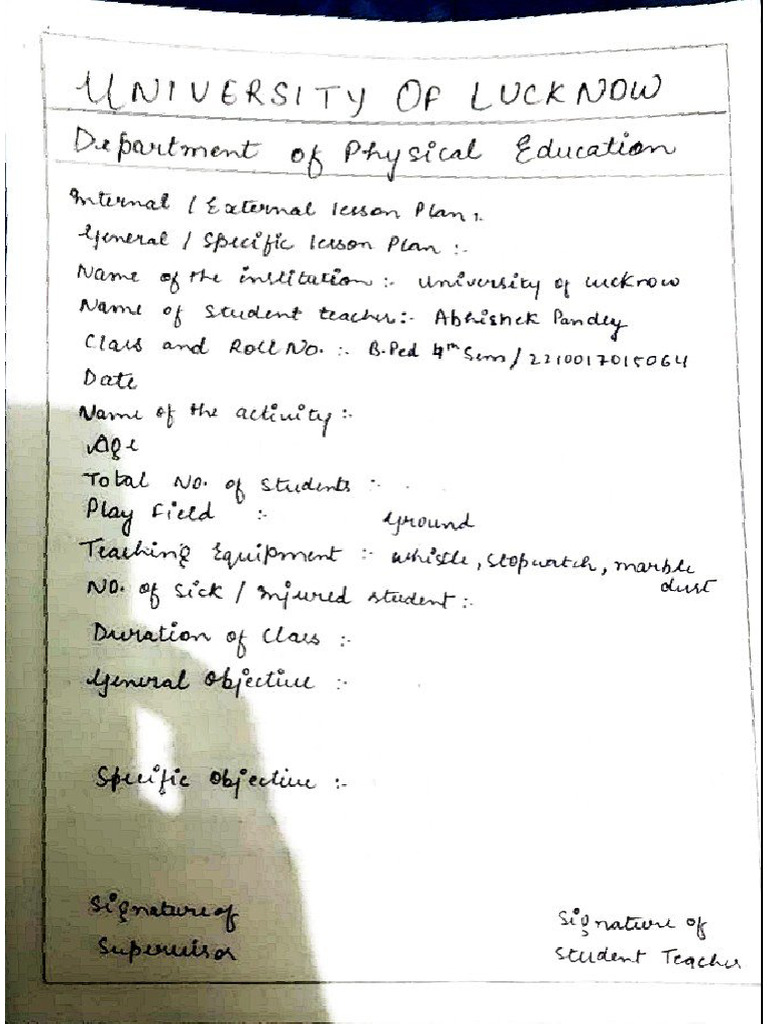 UNIVERSITY OF LUCKNOW
Department of Physical Education
Internal / External lesson Plan :-
General / Specific lesson Plan :-
Name of the institution :- University of lucknow
Name of Student teacher:- Abhishek Pandey
Class and Roll No. :- B.Ped 4th Sem / 2210017015064
Date
Name of the activity :-
Age
Total No. of Students :-
Play Field :- Ground
Teaching Equipment :- whistle, stopwatch, marble dust
No. of Sick / Injured student :-
Duration of Class :-
General Objective :-
Specific Objective :-
Signature of Supervisor
Signature of Student Teacher